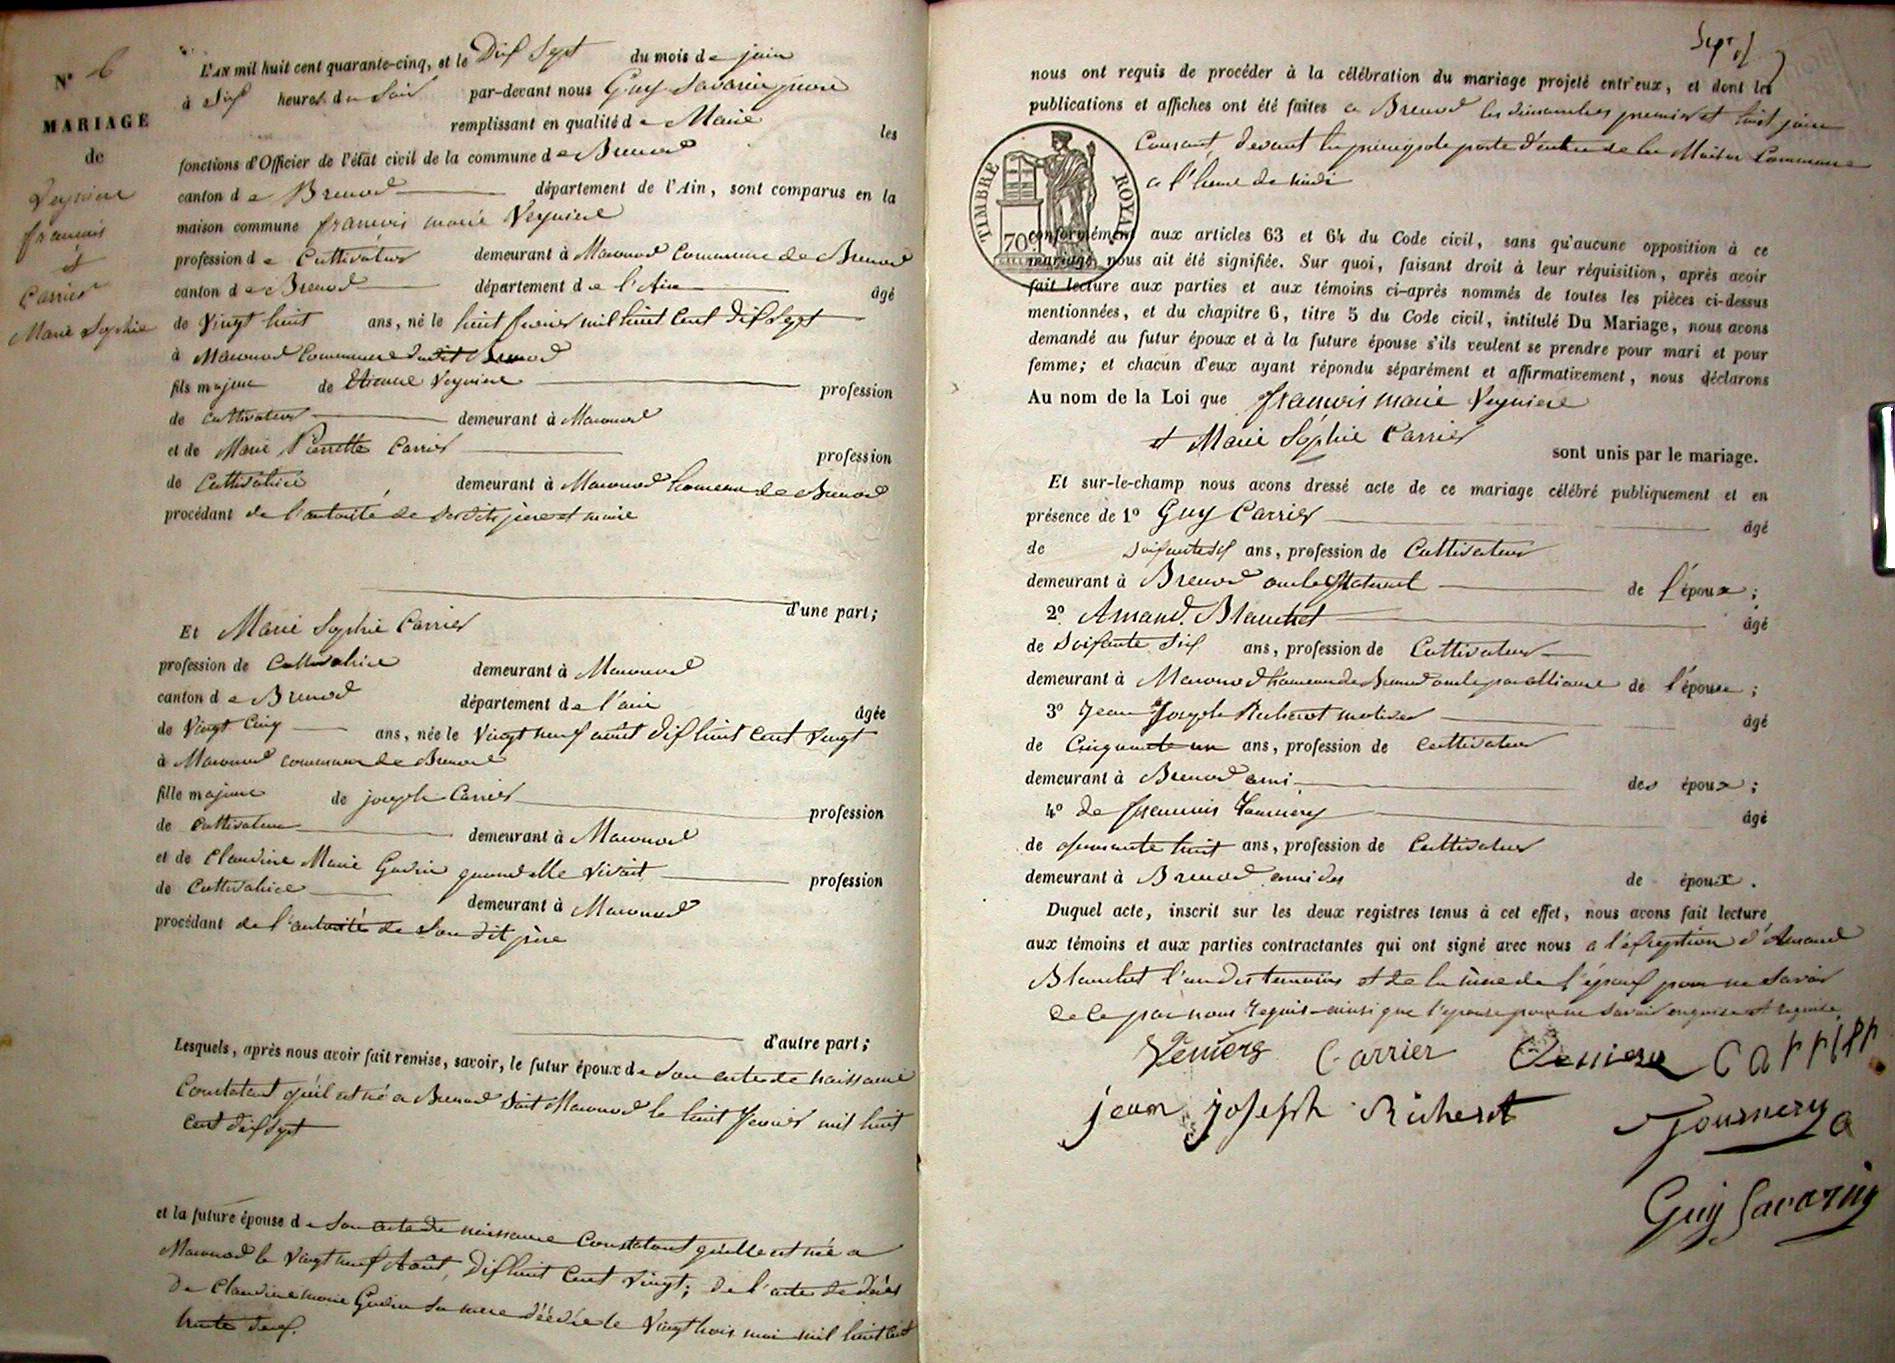 N° 6
MARIAGE
de
Veyniere
francois
et
Carrier
Marie Sophie
L'AN mil huit cent quarante-cinq, et le Dix Sept du mois de juin
à Six heures du Soir par-devant nous Guy Savarin
remplissant en qualité de Maire les
fonctions d'Officier de l'état civil de la commune de Brenod
canton de Brenod département de l'Ain, sont comparus en la
maison commune francois marie Veyniere
profession de Cultivateur demeurant à Macconod Commune de Brenod
canton de Brenod département de l'Ain âgé
de Vingt huit ans, né le huit fevrier mil huit Cent Dix Sept
à Macconod Commune dudit Brenod
fils majeur de Etienne Veyniere profession
de cultivateur demeurant à Macconod
et de Marie Pierrette Carrier profession
de Cultivatrice demeurant à Macconod hameau de Brenod
procédant de l'autorité de Sesdits père et mère
d'une part;
Et Marie Sophie Carrier
profession de Cultivatrice demeurant à Macconod
canton de Brenod département de l'ain
âgée
de Vingt Cinq ans, née le Vingt neuf août dix huit Cent Vingt
à Macconod commune de Brenod
fille majeure de joseph Carrier profession
de Cultivateur demeurant à Macconod
et de Claudine Marie Guérin quand elle Vivait profession
de Cultivatrice demeurant à Macconod
procédant de l'autorité de Son dit père
d'autre part;
Lesquels, après nous avoir fait remise, savoir, le futur époux de Son acte de naissance
Constatant qu'il est né a Brenod Soit Macconod le huit fevrier mil huit
cent dix Sept
et la future épouse de Son acte de naissance Constatant qu'elle est née a
Macconod le Vingt neuf Août, Dix huit Cent Vingt; de l'acte de décès
De Claudine marie Guérin Sa mere décédée le Vingt trois mai mil huit cent
trente deux.
Sept
nous ont requis de procéder à la célébration du mariage projeté entr'eux, et dont les
publications et affiches ont été faites a Brenod les dimanches premier et huit juin
Courant, Devant la principale porte d'entrée de la Maison Commune
a l'heure de midi
TIMBRE ROYAL
70
conformément aux articles 63 et 64 du Code civil, sans qu'aucune opposition à ce
mariage nous ait été signifiée. Sur quoi, faisant droit à leur réquisition, après avoir
fait lecture aux parties et aux témoins ci-après nommés de toutes les pièces ci-dessus
mentionnées, et du chapitre 6, titre 5 du Code civil, intitulé Du Mariage, nous avons
demandé au futur époux et à la future épouse s'ils veulent se prendre pour mari et pour
femme; et chacun d'eux ayant répondu séparément et affirmativement, nous déclarons
Au nom de la Loi que francois marie Veyniere
et Marie Sophie Carrier
sont unis par le mariage.
Et sur-le-champ nous avons dressé acte de ce mariage célébré publiquement et en
présence de 1° Guy Carrier âgé
de ans, profession de Cultivateur
demeurant à Brenod oncle Maternel de l'époux;
2° Amand Blanchet âgé
de Soixante Six ans, profession de Cultivateur
demeurant à Macconod hameau de Brenod oncle par alliance de l'épouse;
3° Jean Joseph Richerot âgé
de Cinquante un ans, profession de cultivateur
demeurant à Brenod ami des époux;
4° de francois Tournery âgé
de quarante huit ans, profession de Cultivateur
demeurant à Brenod ami des de époux.
Duquel acte, inscrit sur les deux registres tenus à cet effet, nous avons fait lecture
aux témoins et aux parties contractantes qui ont signé avec nous a l'exception d'Amand
Blanchet l'un des temoins et de la mère de l'époux pour ne Savoir
de ce par nous requis ainsi que l'epouse pour ne Savoir enquise et requise
Carrier Carrier
jean joseph Richerot
Tournery
Guy Savarin